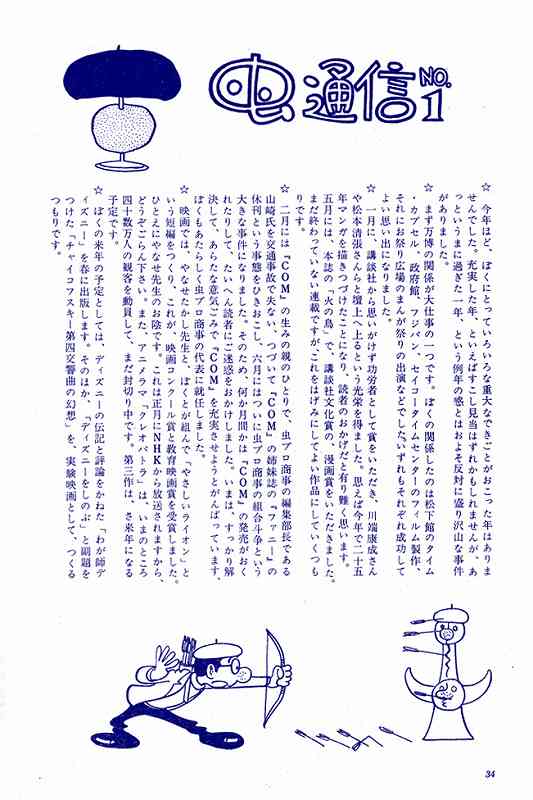 虫通信 NO.1
☆ 今年ほど、ぼくにとっていろいろな重大なできごとがおこった年はありま
せんでした。充実した年、といえばすこし見当はずれかもしれませんが、あ
っというまに過ぎた一年、という例年の感とはおよそ反対に盛り沢山な事件
がありました。
☆ まず万博の関係が大仕事の一つです。ぼくの関係したのは松下館のタイム
・カプセル、政府館、フジパン、セイコータイムセンターのフィルム製作、
それにお祭り広場のまんが祭りの出演などでした。いずれもそれぞれ成功して
よい思い出になりました。
☆ 一月に、講談社から思いがけず功労者として賞をいただき、川端康成さん
や松本清張さんらと壇上へ上るという光栄を得ました。思えば今年で二十五
年マンガを描きつづけたことになり、読者のおかげだと有り難く思います。
五月には、本誌の「火の鳥」で、講談社文化賞の、漫画賞をいただきました。
まだ終わっていない連載ですが、これをはげみにしてよい作品にしていくつも
りです。
☆ 二月には『COM』の生みの親のひとりで、虫プロ商事の編集部長である
山崎氏を交通事故で失ない、つづいて『COM』の姉妹誌の『ファニー』の
休刊という事態をひきおこし、六月にはついに虫プロ商事の組合斗争という
大きな事件になりました。そのため、何か月間かは『COM』の発売がおく
れたりして、たいへん読者にご迷惑をおかけしました。いまは、すっかり解
決して、あらたな意気ごみで『COM』を充実させようとがんばっています。
ぼくもあたらしく虫プロ商事の代表に就任しました。
☆ 映画では、やなせたかし先生と、ぼくとが組んで「やさしいライオン」と
いう短編をつくり、これが、映画コンクール賞と教育映画賞を受賞しました。
ひとえにやなせ先生のお陰です。これは正月にNHKから放送されますから、
どうぞごらん下さい。また、アニメラマ「クレオパトラ」は、いまのところ
四十数万人の観客を動員して、まだ封切り中です。第三作は、さ来年になる
予定です。
☆ ぼくの来年の予定としては、ディズニーの伝記と評論をかねた「わが師デ
ィズニー」を春に出版します。そのほか、「ディズニーをしのぶ」と副題を
つけた「チャイコフスキー第四交響曲の幻想」を、実験映画として、つくる
つもりです。
34